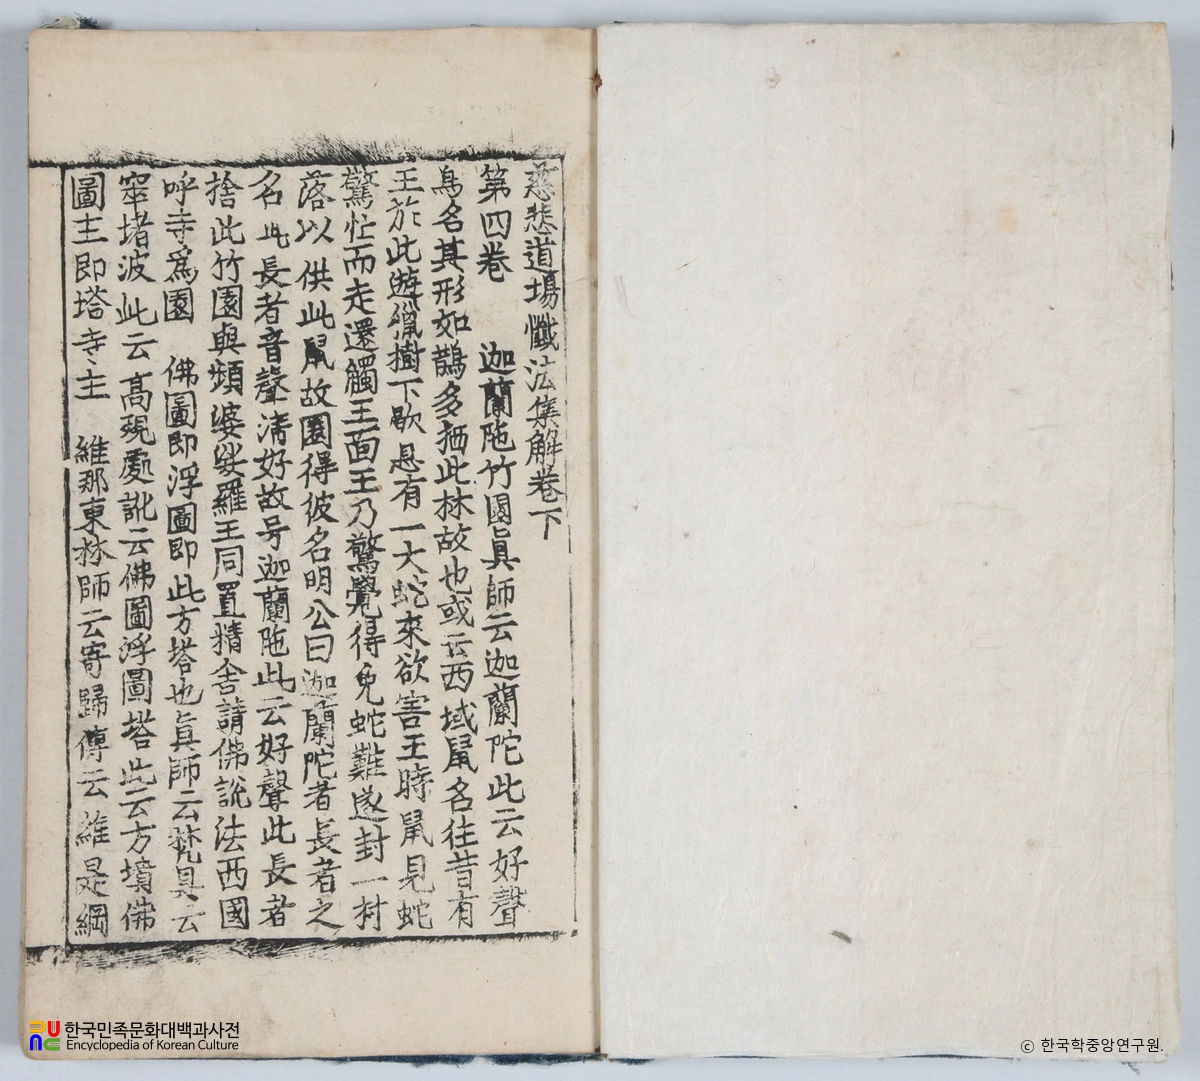 慈悲道場懺法集解卷下
第四卷　迦蘭陁竹園眞師云迦蘭陀此云好聲
鳥名其形如鵲多栖此林故也或云西域鼠名往昔有
王於此遊獵樹下歇息有一大蛇來欲害王時鼠見蛇
驚忙而走還觸王面王乃驚覺得免蛇難遂封一村
落以供此鼠故園得彼名明公曰迦蘭陀者長者之
名此長者音聲淸好故号迦蘭陁此云好聲此長者
捨此竹園與頻婆娑羅王同置精舍請佛說法西國
呼寺爲園　佛圖即浮圖即此方塔也眞師云梵具云
窣堵波此云高現處訛云佛圖浮圖塔此云方墳佛
圖主即塔寺主　維那東林師云寄歸傳云維是綱
한국민족문화대백과사전
Encyclopedia of Korean Culture
ⓒ 한국학중앙연구원.